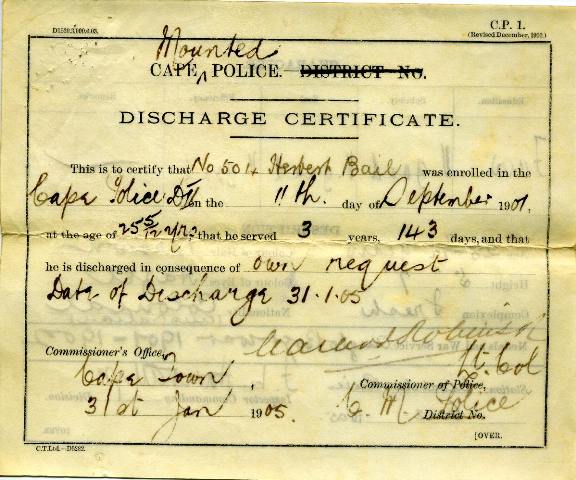 C.P. 1.
(Revised December, 1902.)
Mounted
CAPE ^ POLICE. DISTRICT NO.
DISCHARGE CERTIFICATE.
This is to certify that No 504 Herbert Bail was enrolled in the
Cape Police DII on the 11th. day of September 1901,
at the age of 25 5/12 yrs; that he served 3 years, 143 days, and that
he is discharged in consequence of own request
Date of Discharge 31.1.05
Robinson
Commissioner's Office, Lt. Col
Cape Town, Commissioner of Police,
C M Police
31st Jan 1905. District No.
[OVER.
C.T.Ltd.—D5282.